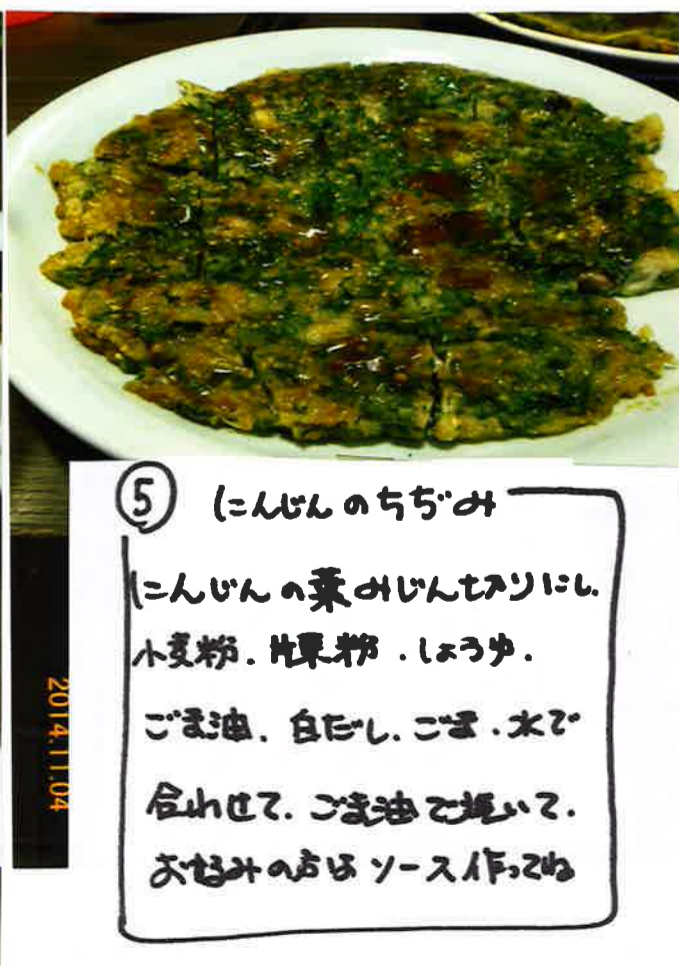 ⑤ にんじんのちぢみ
にんじんの葉みじん切りにし.
小麦粉.片栗粉.しょうゆ.
ごま油.白だし.ごま.水で
合わせて.ごま油で焼いて.
お好みの方はソース作ってね
2014.11.04